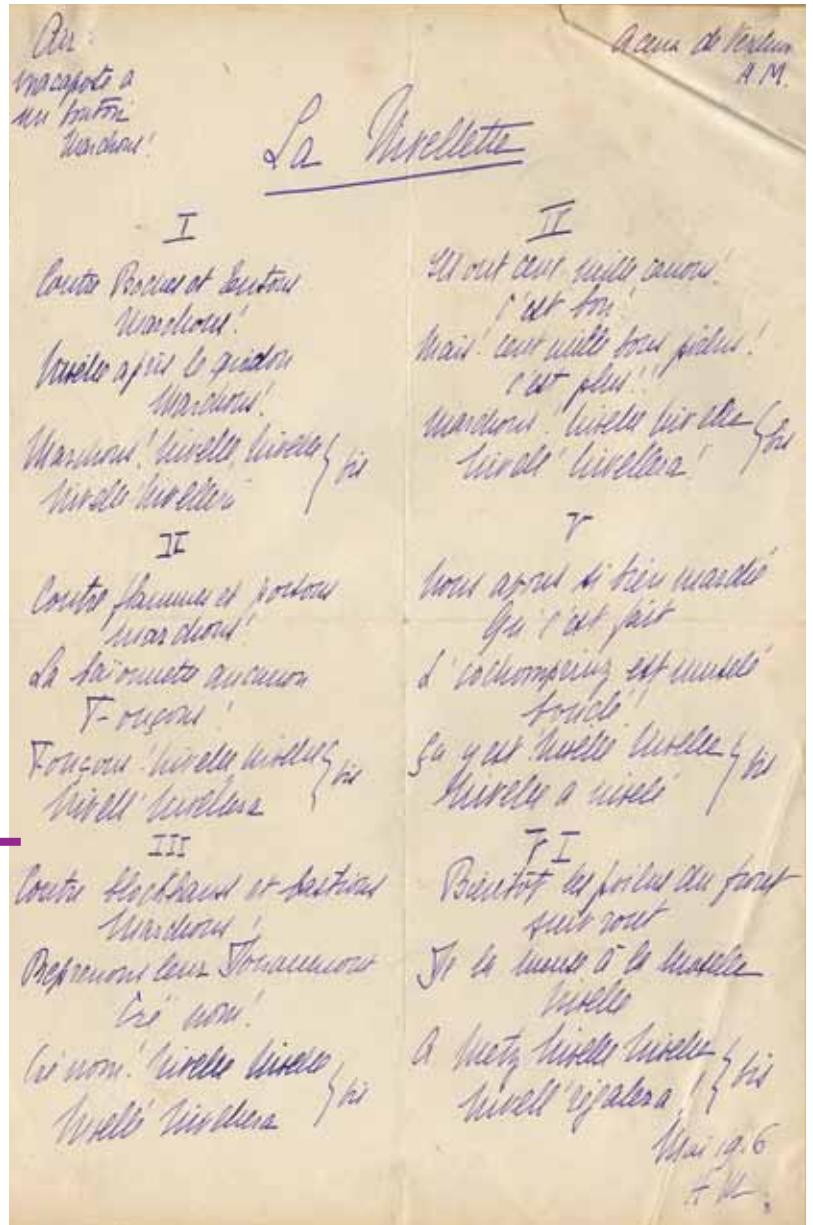 Air :
ma capote a
un bouton
Marchons !
A ceux de Verdun
A.M.
La Nivellette
I
Contre Boches et Teutons
Marchons !
Nivelle après le guidon
Marchons !
Marchons ! Nivelle, Nivelle
Nivelle Nivellera
bis
II
Contre flammes et poisons
marchons !
La baïonnette au canon
Fonçons !
Fonçons ! Nivelle Nivelle
Nivell' Nivellera
bis
III
Contre blockhauss et bastions
Marchons !
Reprenons leur Douaumont
Cré nom !
Cré nom ! Nivelle Nivelle
Nivelle Nivellera
bis
II
Ils ont cent mille canons !
c'est bon !
Mais ! cent mille bons poilus !
c'est plus !!
Marchons ! Nivelle Nivelle
Nivell' Nivellera !
bis
V
Nous avons si bien marché
Qu'c'est fait
est muselé
bouclé !
Ça y est ! Nivelle Nivelle
Nivelle a nivelé
bis
VI
Bientôt les poilus du front
suivront
De la Meuse à la Moselle
Nivelle
A Metz Nivelle Nivelle
Nivell' égalera !
bis
Mai 1916
A M.